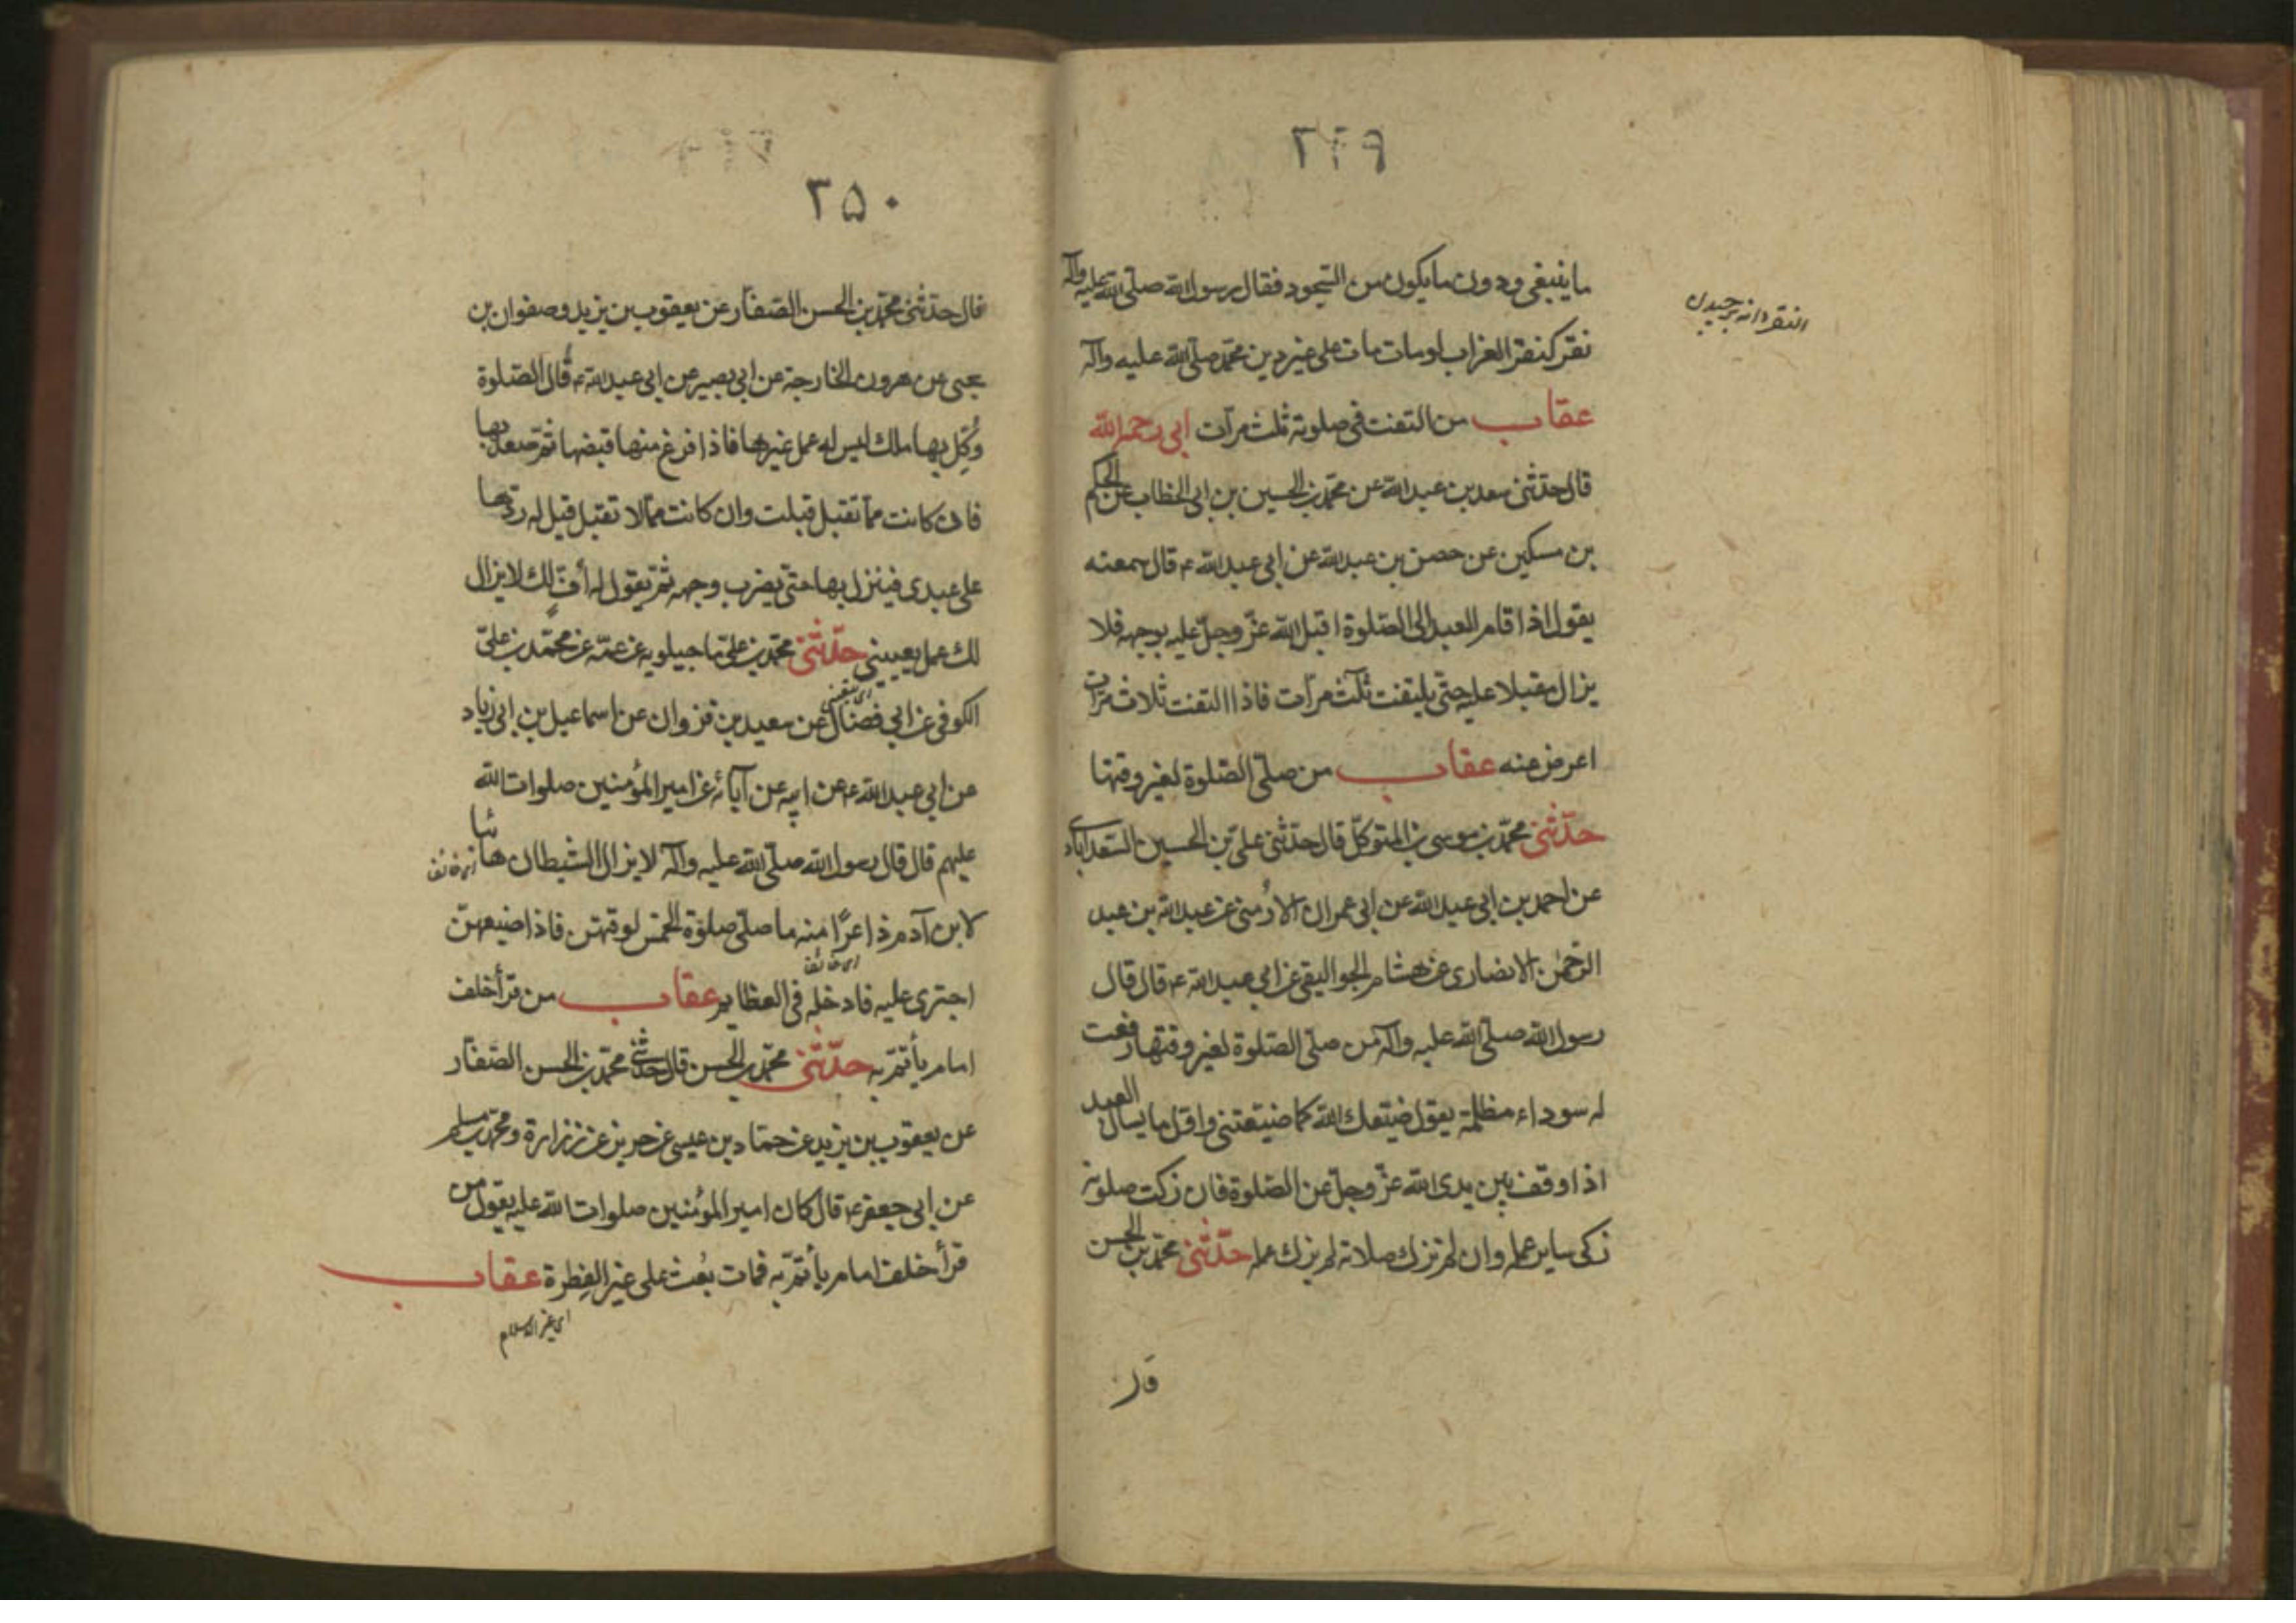 ۲۴۹
ما ينبغی ودون ما يكون من السجود فقال رسول الله صلى الله عليه وآله
نقر كنقر الغراب لو مات مات على غير دين محمد صلى الله عليه وآله
عقاب من التفت فى صلوته ثلث مرآت ابى رحمه الله
قال حدثنى سعد بن عبد الله عن محمد بن الحسين بن ابى الخطاب عن الحكم
بن مسكين عن خضر بن عبد الله عن ابى عبد الله ع قال سمعته
يقول اذا قام العبد الى الصلوة اقبل الله عزّ وجلّ عليه بوجهه فلا
يزال مقبلا عليه حتى يلتفت ثلث مرآت فاذا التفت ثلاث مرات
اعرض عنه عقاب من صلى الصلوة لغير وقتها
حدّثنى محمد بن موسى بن المتوكل قال حدثنى على بن الحسين السعدابادى
عن احمد بن ابى عبد الله عن ابى عمران الأرمنى عن عبد الله بن عبد
الرحمن الانصارى عن هشام الجواليقى عن ابى عبد الله ع قال قال
رسول الله صلى الله عليه وآله من صلى الصلوة لغير وقتها رفعت
له سوداء مظلمة يقول ضيعك الله كما ضيعتنى واول ما يسال العبد
اذا وقف بين يدى الله عزّ وجلّ عن الصلوة فان زكت صلوته
زكى ساير عمله وان لم تزك صلاته لم يزك عمله حدّثنى محمد بن الحسن
النقر دانه برچيدن
قال
۲۵۰
قال حدثنى محمد بن الحسن الصفار عن يعقوب بن يزيد وصفوان بن
يحيى عن هرون الخارجة عن ابى بصير عن ابى عبد الله ع قال الصلوة
وُكِّل بها ملك ليس له عمل غيرها فاذا فرغ منها قبضها ثم صعد بها
فان كانت مما تقبل قبلت وان كانت مما لا تقبل قيل له ردها
على عبدى فينزل بها حتى يضرب وجهه ثم يقول له أفّ لك لا يزال
لك عمل يعيينى حدّثنى محمد بن على ماجيلويه عن عمه عن محمد بن على
الكوفى عن ابى فضال عن سعيد بن غزوان عن اسماعيل بن ابى زياد
عن ابى عبد الله ع عن ابيه عن آبائه عن امير المؤمنين صلوات الله
عليهم قال قال رسول الله صلى الله عليه وآله لا يزال الشيطان هائبا
اى خائف
لابن آدم ذاعرًا منه ما صلى صلوة الخمس لوقتهن فاذا ضيعهن
اى خائف
اجترى عليه فادخله فى العظايم عقاب من قرأ خلف
امام يأتم به حدّثنى محمد بن الحسن قال حدثنى محمد بن الحسن الصفار
عن يعقوب بن يزيد عن حماد بن عيسى عن حريز عن زرارة ومحمد بن مسلم
عن ابى جعفر ع قال كان امير المؤمنين صلوات الله عليه يقول من
قرأ خلف امام يأتم به فمات بُعث على غير الفِطرة عقاب
اى غير الاسلام